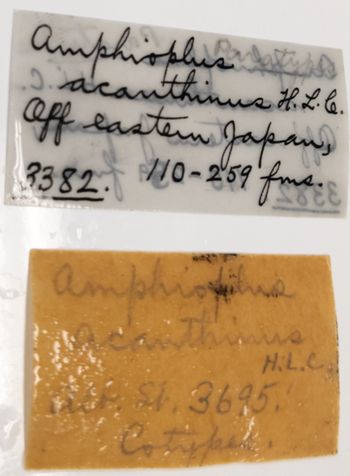 Amphioplus
acanthinus H.L.C.
Off eastern Japan,
3382. 110-259 fms.
Amphioplus
acanthinus
H.L.C.
St. 3695.
Cotypes.